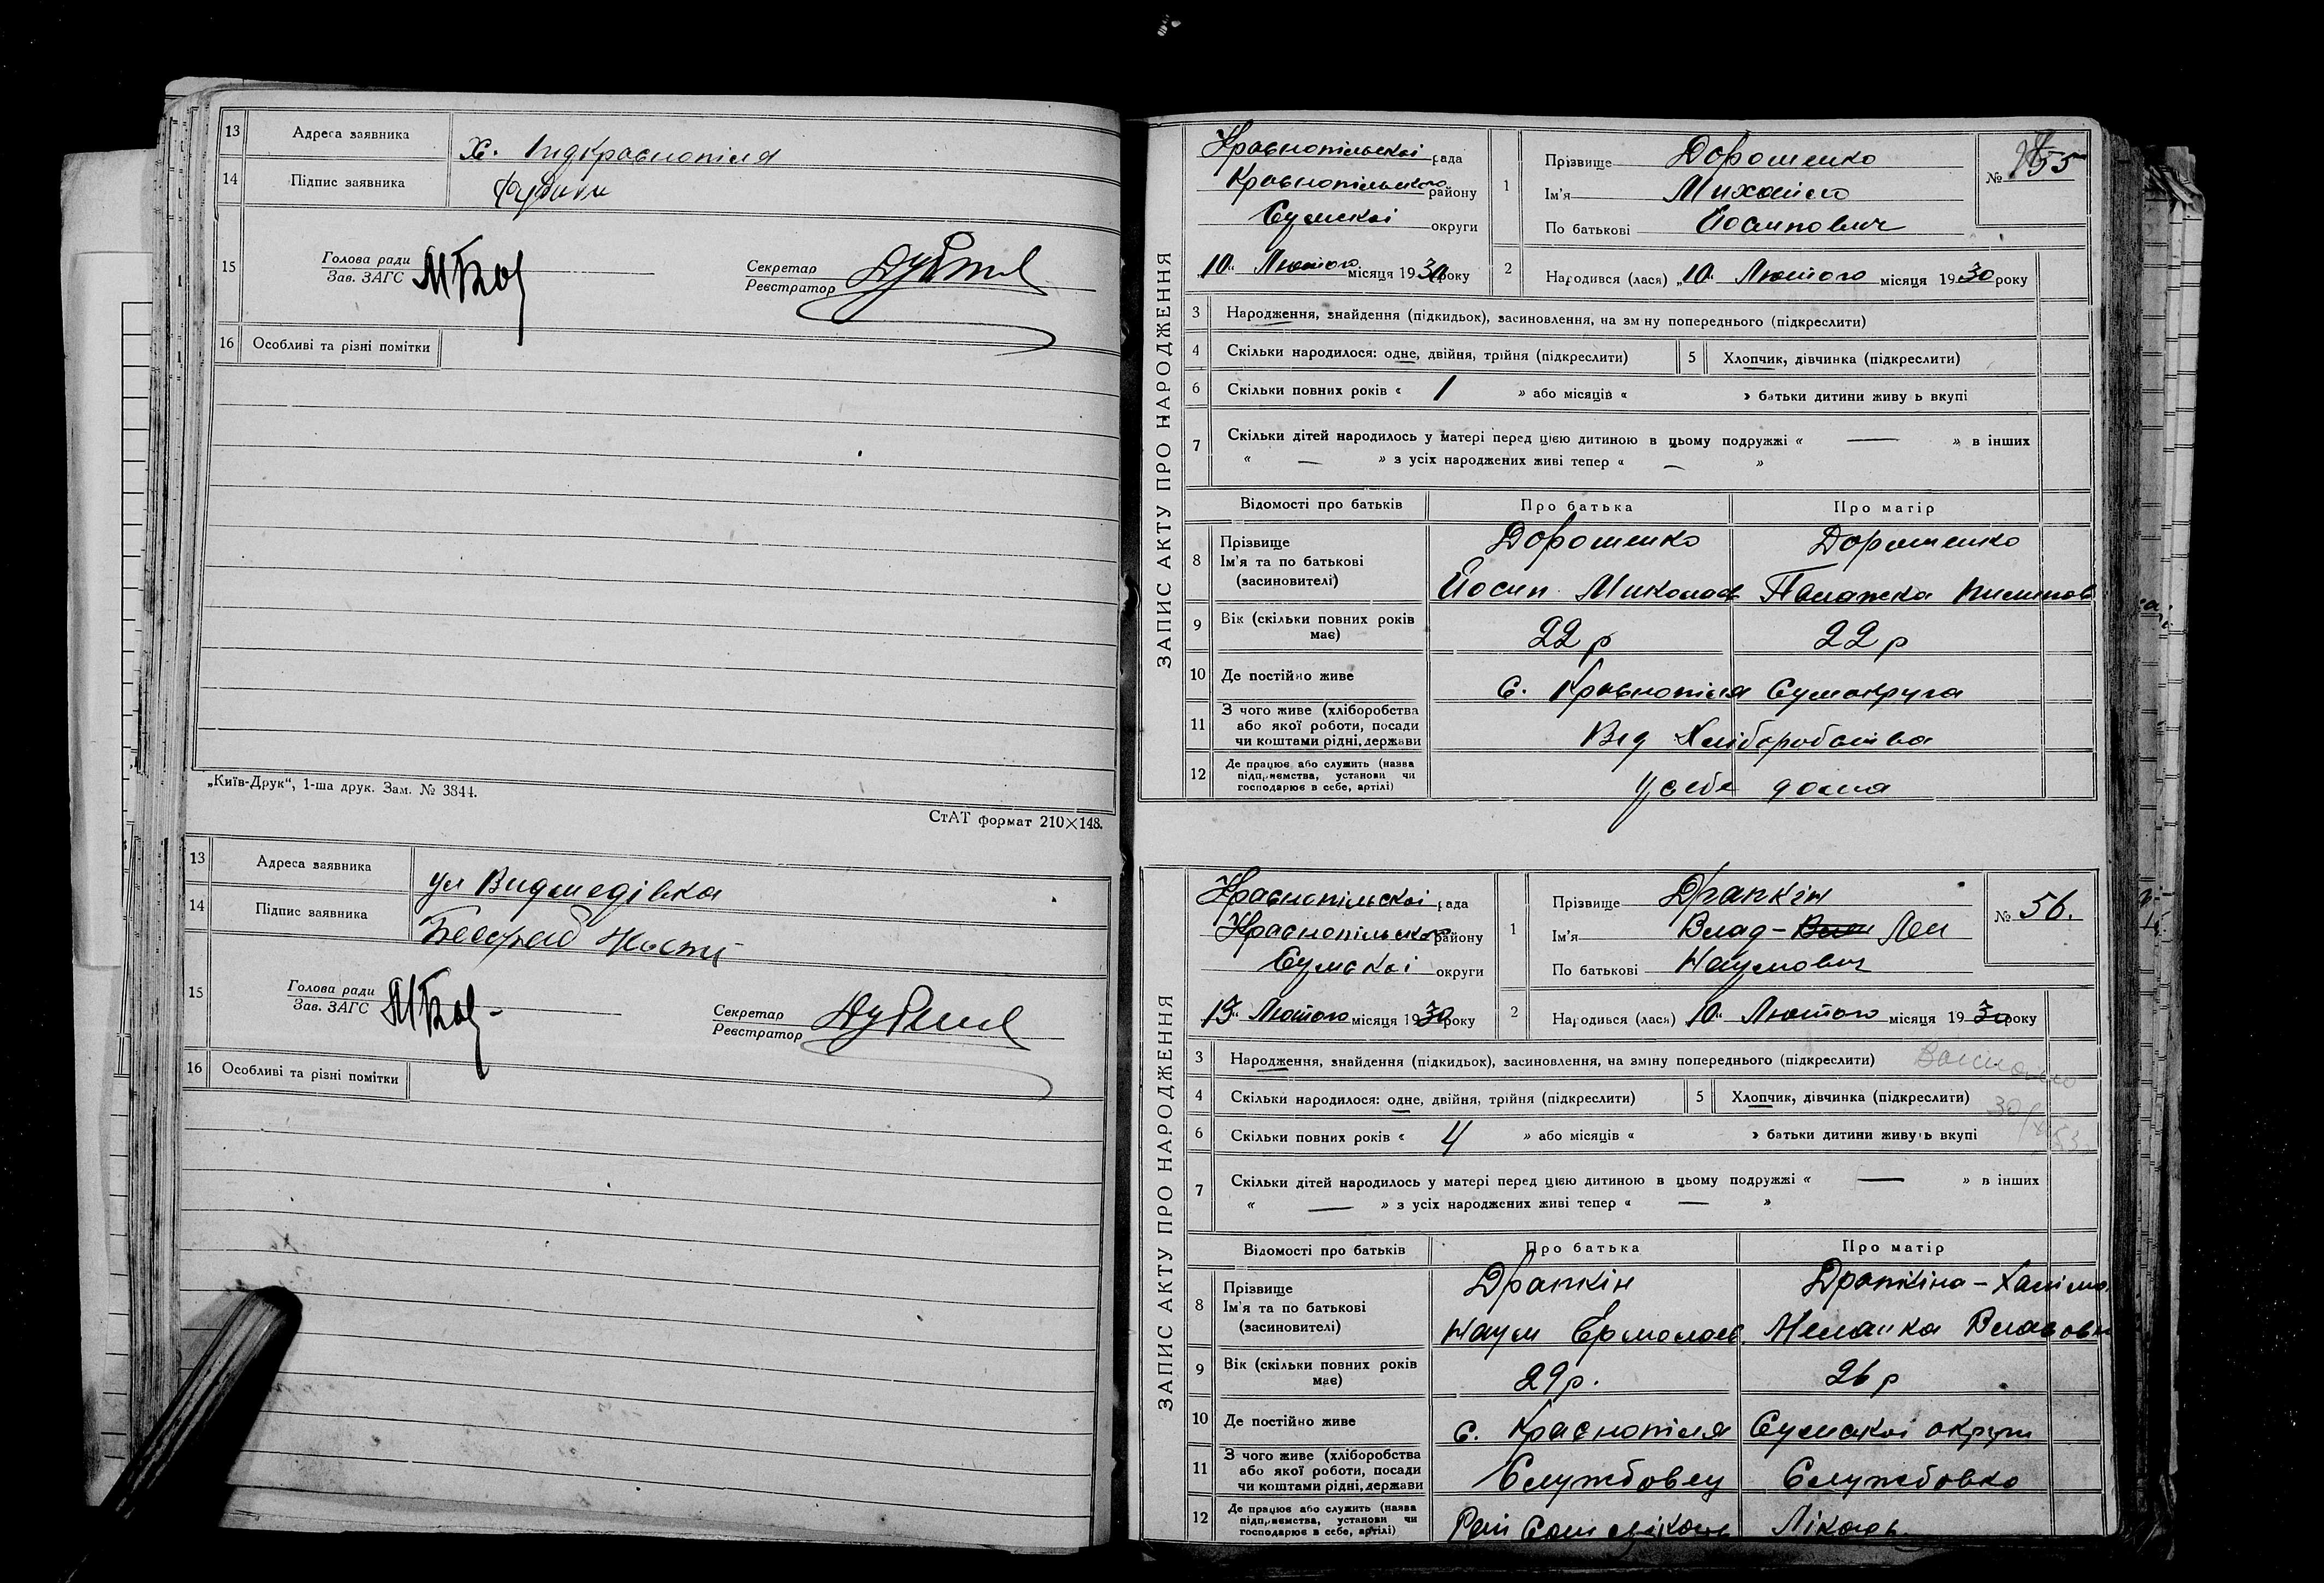 13 Адреса заявника х. Підкраснопілля
14 Підпис заявника
15 Голова ради
Зав. ЗАГС
Секретар
Реєстратор
16 Особливі та різні помітки
„Київ-Друк“, 1-ша друк. Зам. № 3844.
СтАТ формат 210×148.
13 Адреса заявника ул
14 Підпис заявника
15 Голова ради
Зав. ЗАГС
Секретар
Реєстратор
16 Особливі та різні помітки
ЗАПИС АКТУ ПРО НАРОДЖЕННЯ
Краснопільскої рада
Краснопільського району
Сумскої округи
10 Лютого місяця 1930 року
1 Прізвище Дорошенко
Ім'я Михайло
По батькові Йосипович
№ 55
2 Народився (лася) „10“ Лютого місяця 1930 року
3 Народження, знайдення (підкидьок), засиновлення, на зміну попереднього (підкреслити)
4 Скільки народилося: одне, двійня, трійня (підкреслити) 5 Хлопчик, дівчинка (підкреслити)
6 Скільки повних років « 1 » або місяців « » батьки дитини живуть вкупі
7 Скільки дітей народилось у матері перед цією дитиною в цьому подружжі « — » в інших
« — » з усіх народжених живі тепер « — »
Відомості про батьків Про батька Про матір
8 Прізвище Дорошенко Дорошенко
Ім'я та по батькові
(засиновителі) Йосип Миколаєв Палажка
9 Вік (скільки повних років має) 22 р 22 р
10 Де постійно живе с. Краснопілля Сумокруга
11 З чого живе (хліборобства
або якої роботи, посади
чи коштами рідні, держави Від Хліборобства
12 Де працює або служить (назва
підприємства, установи чи
господарює в себе, артілі) У себе дома
ЗАПИС АКТУ ПРО НАРОДЖЕННЯ
Краснопільскої рада
Краснопільського району
Сумскої округи
13 Лютого місяця 1930 року
1 Прізвище Драпкін
Ім'я Влад- Лен
По батькові Наумович
№ 56.
2 Народився (лася) 10 Лютого місяця 1930 року
3 Народження, знайдення (підкидьок), засиновлення, на зміну попереднього (підкреслити)
4 Скільки народилося: одне, двійня, трійня (підкреслити) 5 Хлопчик, дівчинка (підкреслити)
6 Скільки повних років « 4 » або місяців « » батьки дитини живуть вкупі
7 Скільки дітей народилось у матері перед цією дитиною в цьому подружжі « — » в інших
« — » з усіх народжених живі тепер « — »
Відомості про батьків Про батька Про матір
8 Прізвище Драпкін Драпкіна-
Ім'я та по батькові
(засиновителі) Наум Ермолаєв
9 Вік (скільки повних років має) 29 р. 26 р
10 Де постійно живе с. Краснопілля Сумскої округи
11 З чого живе (хліборобства
або якої роботи, посади
чи коштами рідні, держави Службовец Службовка
12 Де працює або служить (назва
підприємства, установи чи
господарює в себе, артілі) Лікарь